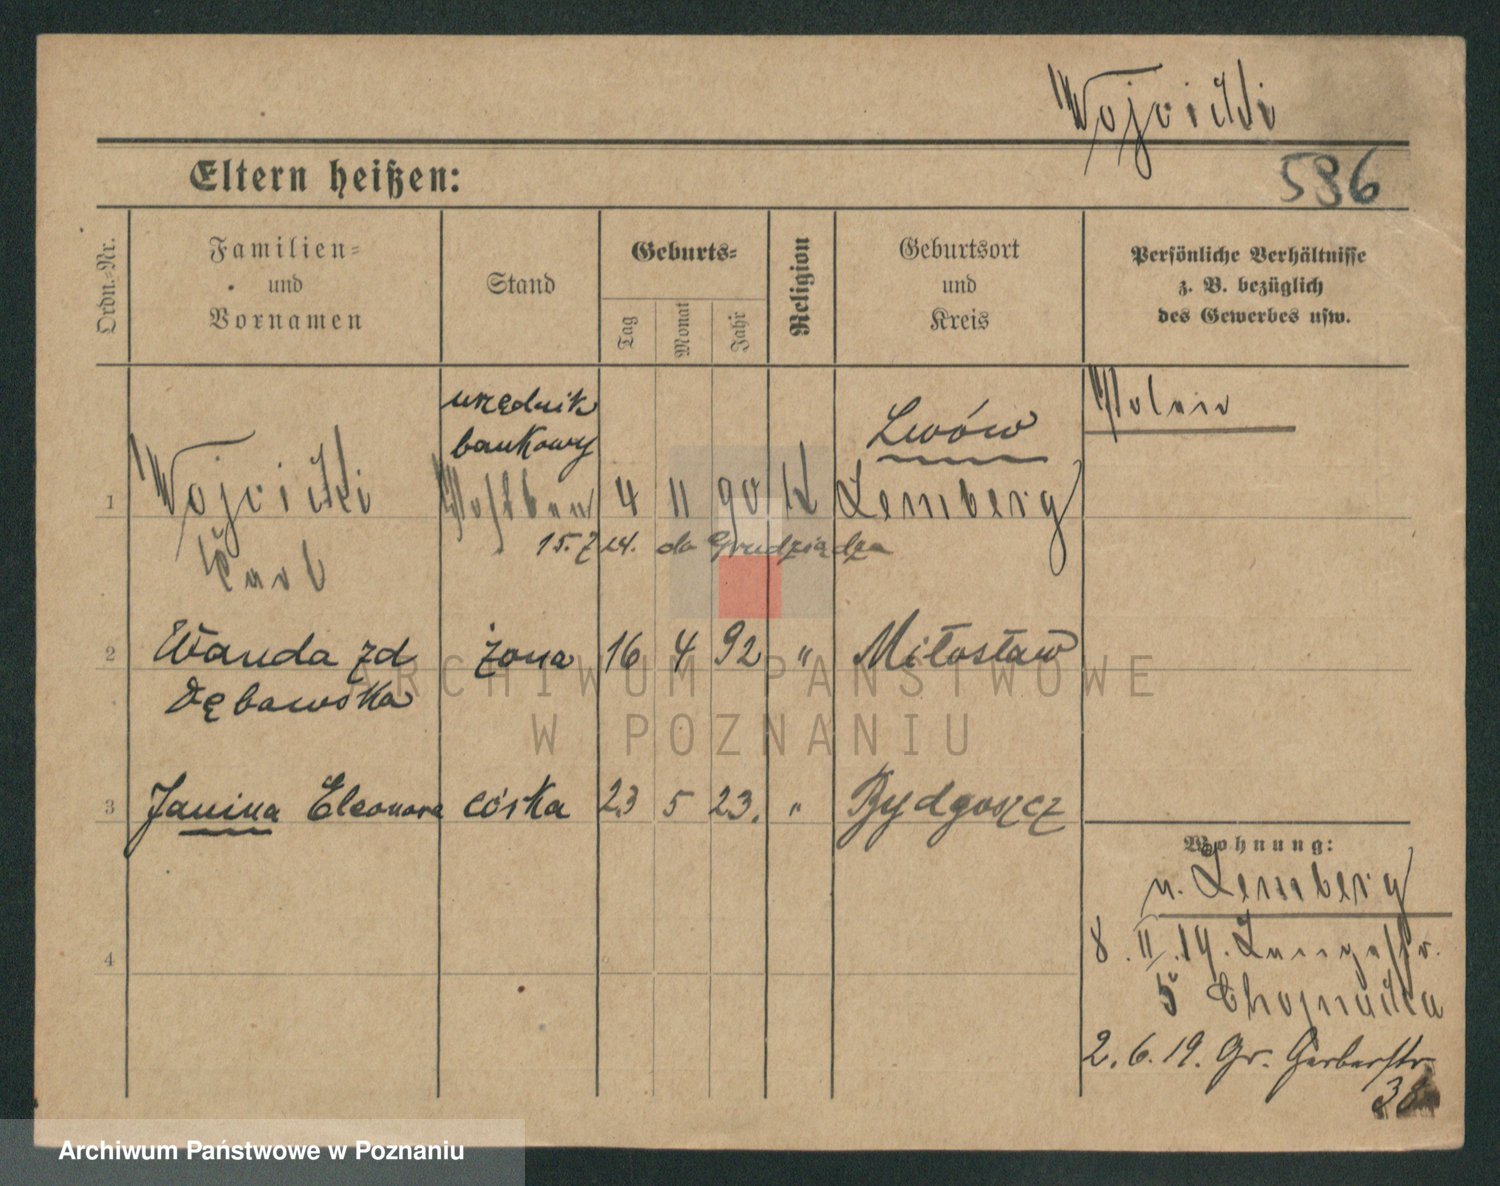 Wojcicki
586
Eltern heißen:
Ordn.-Nr.
Familien-
und
Vornamen
Stand
Geburts-
Tag
Monat
Jahr
Religion
Geburtsort
und
Kreis
Persönliche Verhältnisse
z. B. bezüglich
des Gewerbes usw.
urzędnik
bankowy
Lwów
1 Wojcicki 4 11 90 K Lemberg
15.7 24. do Grudziądza
Carl
2 Wanda zd żona 16 4 92 " Miłosław
Dębowska
3 Janina Eleonora córka 23 5 23. " Bydgoszcz
4
Wohnung:
v. Lemberg
8.II.19. Langestr.
5 Chojnacka
2.6.19. Gr. Gerberstr.
38
ARCHIWUM PAŃSTWOWE
W POZNANIU
Archiwum Państwowe w Poznaniu